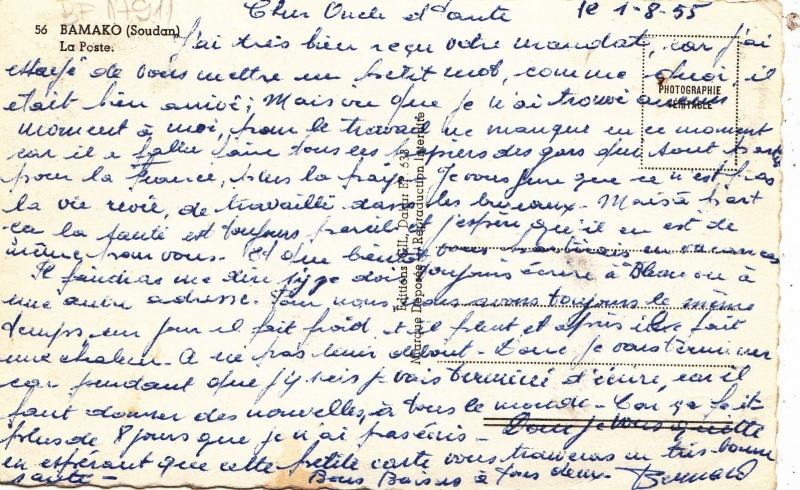 BF (791)
Cher Oncle et Tante le 1-8-55
56 BAMAKO (Soudan)
La Poste.
J'ai très bien reçu votre mandat, car j'ai
essayé de vous mettre un petit mot, comme quoi, il
était bien arrivé; Mais vu que je n'ai trouvé aucun
moment à moi, pour le travail ne manque en ce moment
car il a fallu faire tous les papiers des gars qui sont partis
pour la France, plus la paye. Je vous jure que ce n'est pas
la vie de travailler dans les bureaux. Mais à part
ça la santé est toujours pareille et j'espère qu'il en est de
même pour vous. Et que bientôt vous partirais en vacances
Il faudras me dire si je dois toujours écrire à ou à
une autre adresse. Pour nous avons toujours le même
temps, un jour il fait froid et il pleut et après il fait
une chaleur. A ne pas tenir debout. Donc je vais terminer
car pendant que j'y suis je vais terminé d'écrire, car il
faut donner des nouvelles, à tous le monde. Car ça fait
plus de 8 jours que je n'ai pas écris. Donc je vous quitte
en espérant que cette petite carte vous trouveras en très bonne
santé. Bons Baisers à tous deux. Bernard
PHOTOGRAPHIE
VÉRITABLE
Marque Déposée Reproduction Interdite